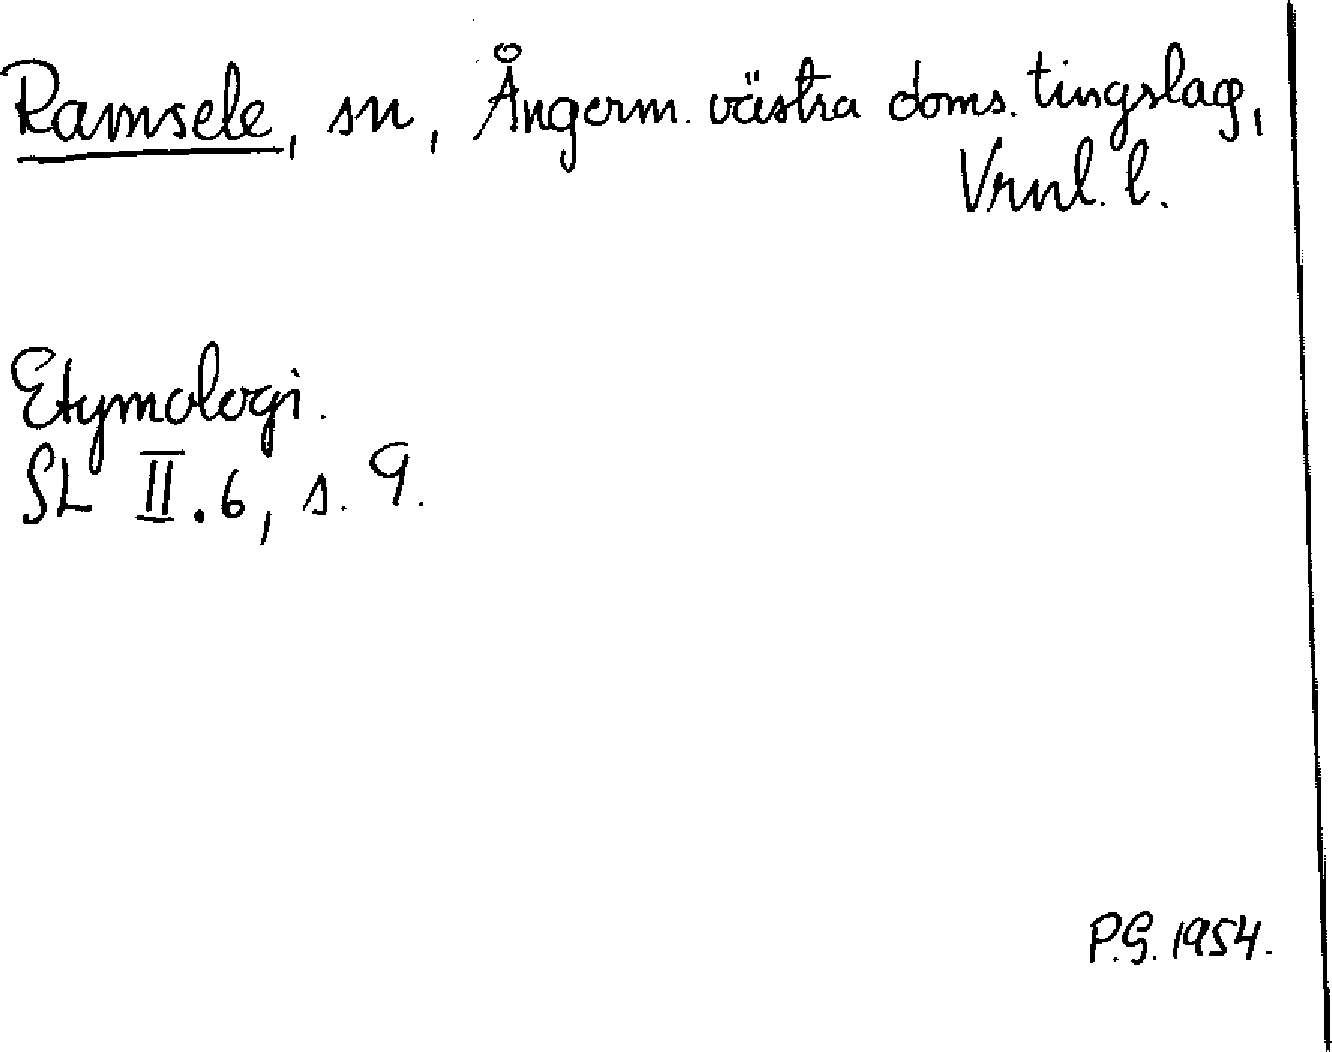 Ramsele, sn, Ångerm. västra doms. tingslag,
Vrnl. l.
Etymologi.
SL II.6, s. 9.
P.G. 1954.